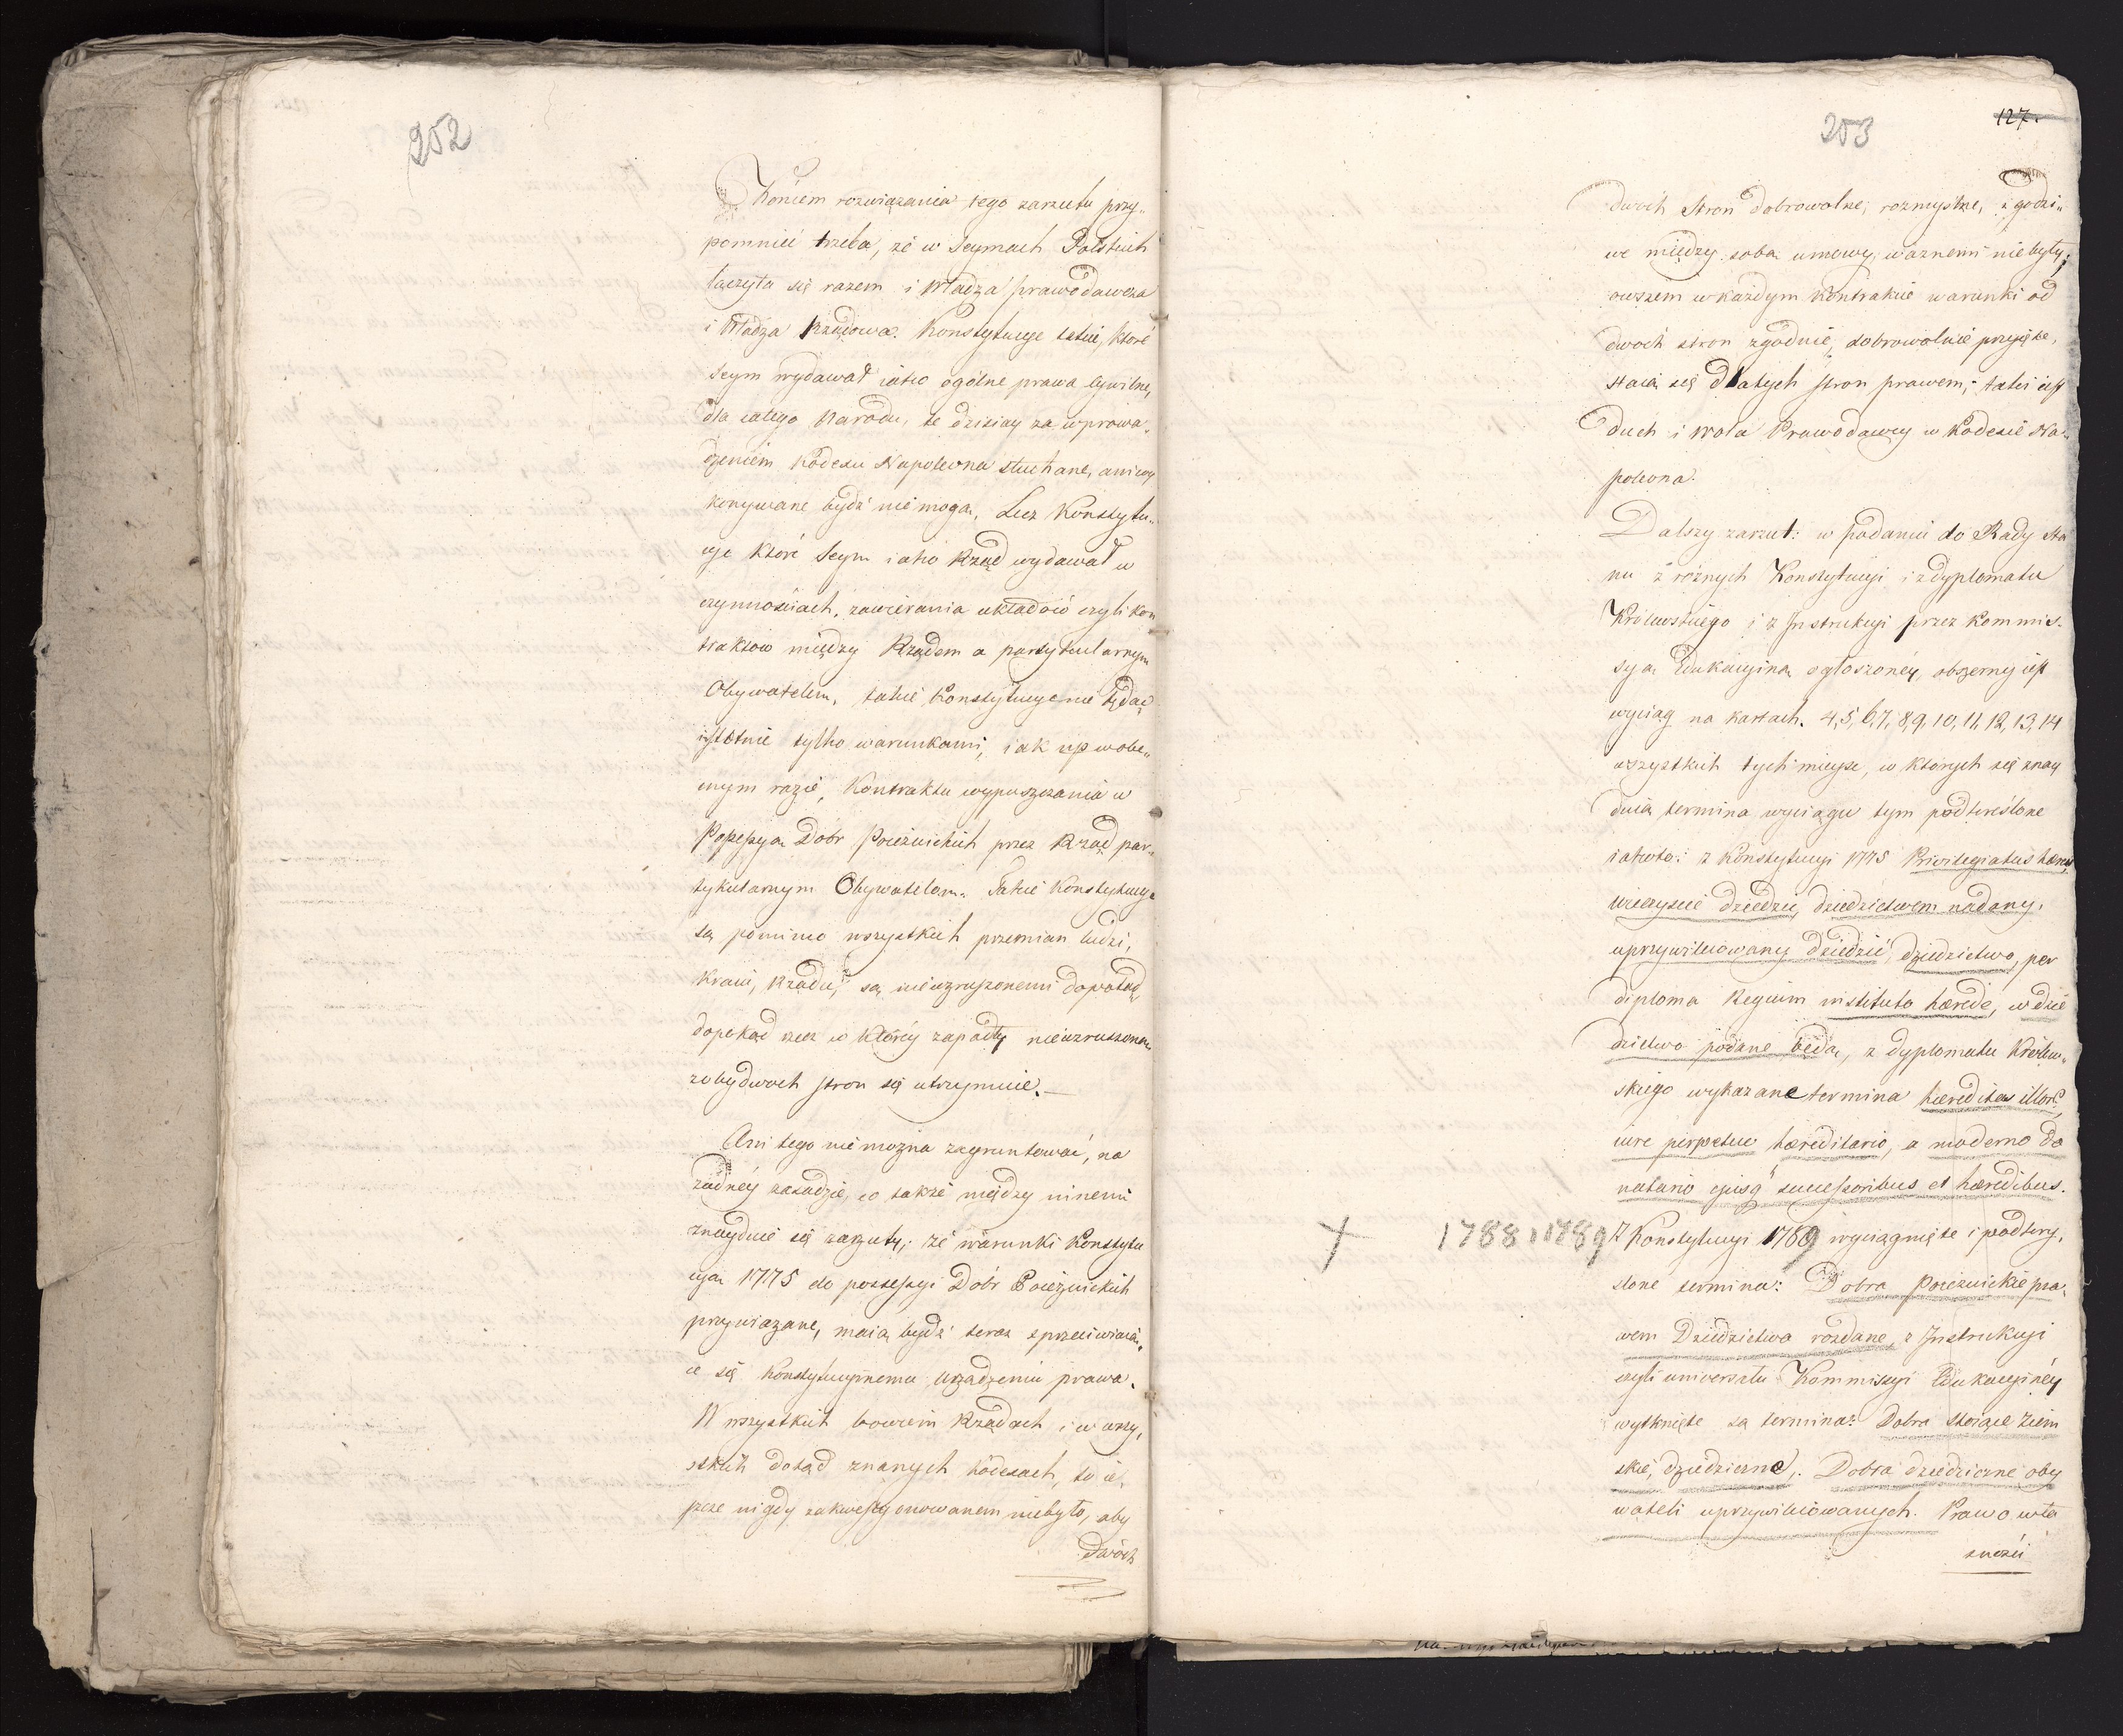 252
Końcem rozwiązania tego zarzutu przy„
pomnieć trzeba, że w Seymach Polskich
łączyła się razem i Władza prawodawcza
i Władza Rządowa. Konstytucye takie, które
Seym wydawał iako ogólne prawa cywilne,
dla całego Narodu, te dzisiay za wprowa„
dzeniem Kodexu Napoleona słuchane, ani wy
konywane bydź nie mogą. Lecz Konstytu„
cye które Seym iako Rząd wydawał w
czynnościach, zawierania układów czyli kon
traktów między Rządem a partykularnym
Obywatelem, takie Konstytucye nie będąc
istotnie tylko warunkami, iak np w obe„
cnym razie, Kontraktu wypuszczania w
Possessyą Dobr Poiezuickich przez Rząd par„
tykularnym Obywatelom. Takie Konstytucye
są pomimo wszystkich przemian ludzi,
kraiu, Rządu, są niewzruszonemi dopokąd,
dopokąd rzecz w którey zapadły niewzruszona
z obydwoch stron się utrzymuie.—
Ani tego nie można zagruntować, na
żadnéy zasadzie, co także między innemi
znayduie się zarzuty; że warunki Konstytu
cyą 1775 do possessyi Dobr Poiezuickich
przywiązane, maią bydź teraz sprzeciwiaią„
ce się Konstytucyinemu urządzeniu prawa.
W wszystkich bowiem Rządach i w wszy„
stkich dotąd znanych kodexach, to ie„
szcze nigdy zakwestyonowanem nie było, aby
dwóch
253
127.
dwóch Stron dobrowolne, rozmyslne, i godzi„
we między sobą umowy, ważnemi nie były;
owszem w każdym Kontrakcie warunki od
dwóch stron zgodnie, dobrowolnie przyięte,
staią się dla tych stron prawem; taki iest
Duch i wola Prawodawcy w Kodexie Na„
poleona.
Dalszy zarzut: w podaniu do Rady Sta
nu z różnych Konstytucyi i z dyplomatu
Królewskiego i z Instrukcyi przez Kommis„
syą Edukacyiną ogłoszonéy, obszerny iest
wyciąg na kartach. 4, 5, 6, 7, 8, 9, 10, 11, 12, 13, 14
wszystkich tych mieysc, w których się znay
duią termina wyciągu tym podkreslone
iakoto: z Konstytucyi 1775 Privilegiatus hæres,
wieczyście dziedzic, dziedzictwem nadany,
uprzywileiowany dziedzic, dziedzictwo, per
diploma Regium instituto hærede, w dzie
dzictwo podane będą, z dyplomatu Królew„
skiego wykazane termina hæreditas illor:,
iure perpetuo hæreditario, a moderno do
natario ejusq successoribus et hæredibus.
+ 1788 i 1789 Z Konstytucyi 1789 wyciągnięte i podkry„
slone termina: Dobra Poiezuickie pra„
wem Dziedzictwa rozdane, z Instrukcyi
czyli uniwersału Kommissyi Edukacyinéy
wytknięte są termina: Dobra stoiące ziem
skie, dziedziczne, Dobra dziedziczne oby
wateli uprzywileiowanych. Prawo wła
sności